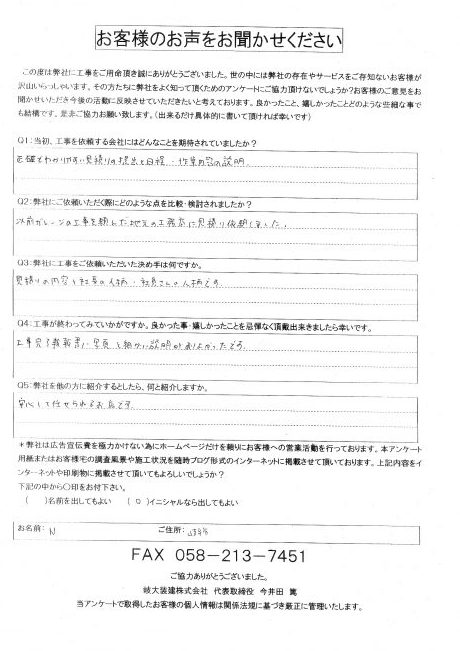 お客様のお声をお聞かせください
この度は弊社に工事をご用命頂き誠にありがとうございました。世の中には弊社の存在やサービスをご存知ないお客様が
沢山いらっしゃいます。その方々に弊社をよく知って頂くためのアンケートにご協力頂けないでしょうか?お客様のご意見をお
聞かせいただき今後の活動に反映させていただきたいと考えております。良かったこと、嬉しかったことどのような些細な事で
も結構です。是非ご協力お願い致します。(出来るだけ具体的に書いて頂ければ幸いです)
Q1:当初、工事を依頼する会社にはどんなことを期待されていましたか?
正確でわかりやすい見積りの提出と日程・作業内容の説明
Q2:弊社にご依頼いただく際にどのような点を比較・検討されましたか?
以前ガレージの工事を頼んだ地元の工務店に見積り依頼しました。
Q3:弊社に工事をご依頼いただいた決め手は何ですか。
見積りの内容と社長の人柄・社員さんの人柄です。
Q4:工事が終わってみていかがですか。良かった事・嬉しかったことを忌憚なく頂戴出来きましたら幸いです。
工事完了報告書に写真と細かい説明がありよかったです。
Q5:弊社を他の方に紹介するとしたら、何と紹介しますか。
安心して任せられるお店です。
*弊社は広告宣伝費を極力かけない為にホームページだけを頼りにお客様への営業活動を行っております。本アンケート
用紙またはお客様宅の調査風景や施工状況を随時ブログ形式のインターネットに掲載させて頂いております。上記内容をイ
ンターネットや印刷物に掲載させて頂いてもよろしいでしょうか?
下記の中から〇印をお付下さい。
( )名前を出してもよい ( 〇 )イニシャルなら出してもよい
お名前: N ご住所:
FAX 058-213-7451
ご協力ありがとうございました。
岐大装建株式会社 代表取締役 今井田 篤
当アンケートで取得したお客様の個人情報は関係法規に基づき厳正に管理いたします。